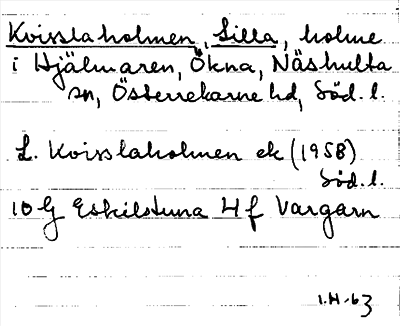 Kvisslaholmen, Silla, holme
i Hjälmaren, Ökna, Näshulta
sn, Österrekarne hd, Söd. l.
L. Kvisslaholmen ek (1958)
Söd. l.
10 G Eskilstuna 4 f Vargarn
1.H.-63